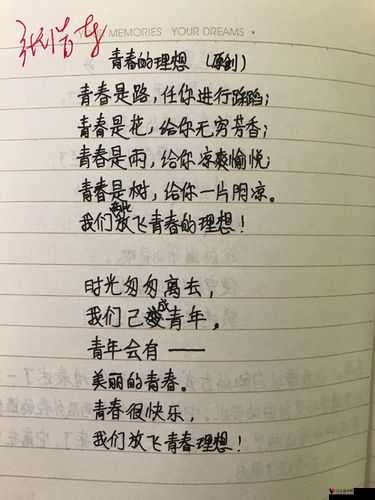 MEMORIES YOUR DREAMS
青春的理想 (原创)
青春是路，任你进行踩蹈；
青春是花，给你无穷芳香；
青春是雨，给你凉爽愉悦；
青春是树，给你一片阴凉。
我们放飞青春的理想！
时光匆匆离去，
我们已成青年。
青年会有——
美丽的青春。
青春很快乐，
我们放飞青春理想！